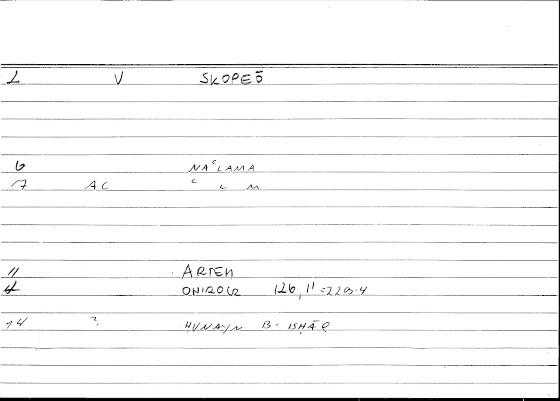 1 V SKOPEŌ
6 NAʿLAMA
7 AC ʿ L M
11 ARTEM
ONIROCR 126,11=229.4
14 ? ḤUNAYN B. ISḤĀQ